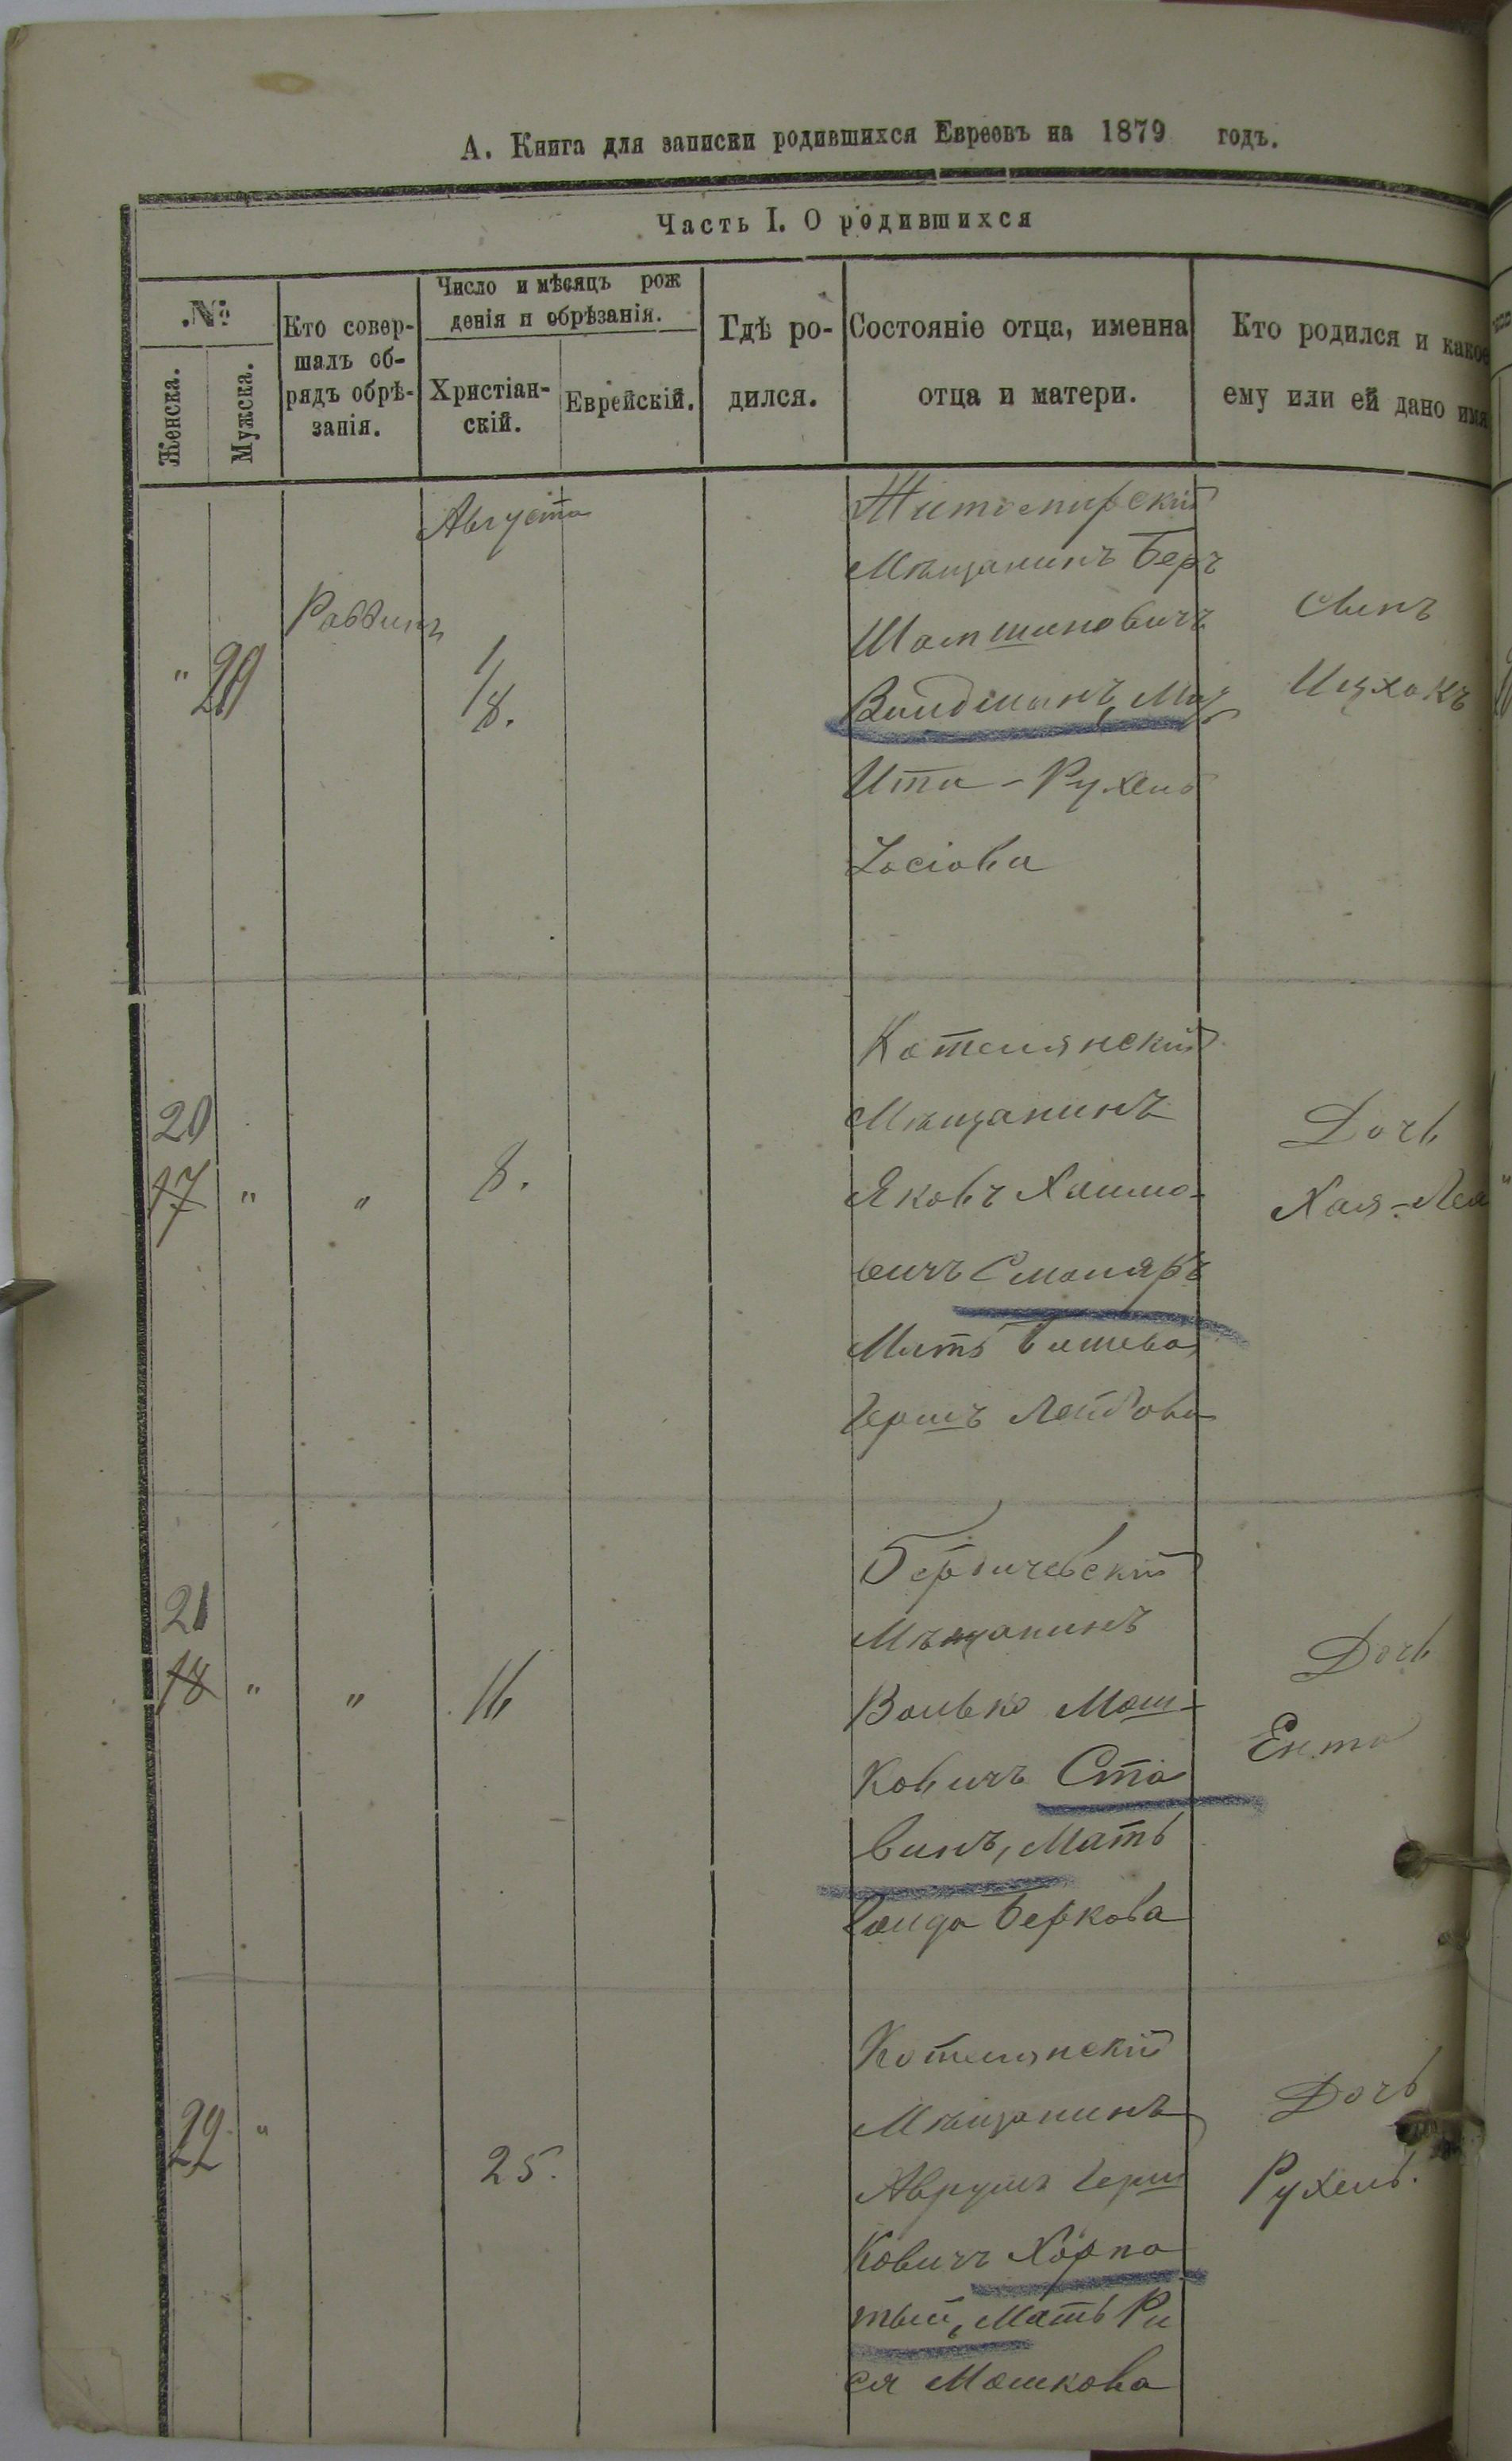 А. Книга для записки родившихся Евреевъ на 1879 годъ.
Часть I. О родившихся
№
Женска.
Мужска.
Кто совер-
шалъ об-
рядъ обрѣ-
занія.
Число и мѣсяцъ рож
денія и обрѣзанія.
Христіан-
скій.
Еврейскій.
Гдѣ ро-
дился.
Состояніе отца, именна
отца и матери.
Кто родился и какое
ему или ей дано имя
"
Раввинъ
Августа
1/8.
Житомирскій
Мѣщанинъ Беръ
Шамшиновичъ
Вайдманъ, Мать
Ита - Рухель
Іосіова
Сынъ
Ицхокъ
20
17 " "
8.
Котелянскій
Мѣщанинъ
Яковъ Хаимо-
вичъ Смоляръ
Мать
Гершъ Лейбова
Дочь
Хая-Лея
21
18 " "
16
Бердичевскій
Мѣщанинъ
Волько Мош-
ковичъ Ста
винъ, Мать
Беркова
Дочь
Ента
22 "
25.
Котелянскій
Мѣщанинъ
Аврумъ Герш
ковичъ Хорпа
тый, Мать Ри
ся Мошкова
Дочь
Рухель.